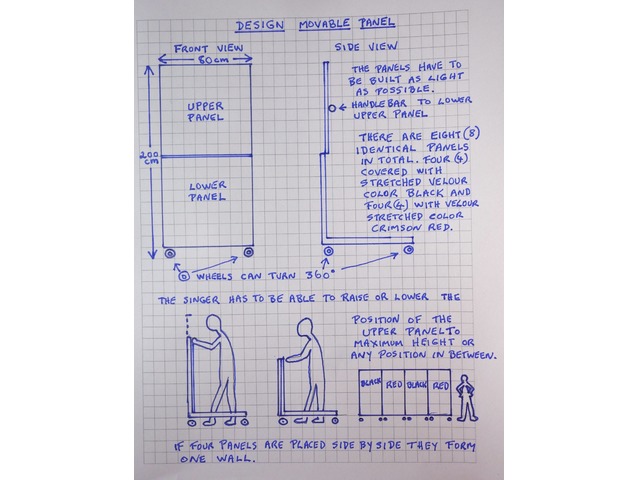 DESIGN MOVABLE PANEL
FRONT VIEW
80cm
200
cm
UPPER
PANEL
LOWER
PANEL
SIDE VIEW
THE PANELS HAVE TO
BE BUILT AS LIGHT
AS POSSIBLE.
HANDLEBAR TO LOWER
UPPER PANEL
THERE ARE EIGHT (8)
IDENTICAL PANELS
IN TOTAL. FOUR (4)
COVERED WITH
STRETCHED VELOUR
COLOR BLACK AND
FOUR (4) WITH VELOUR
STRETCHED COLOR
CRIMSON RED.
WHEELS CAN TURN 360°
THE SINGER HAS TO BE ABLE TO RAISE OR LOWER THE
POSITION OF THE
UPPER PANEL TO
MAXIMUM HEIGHT OR
ANY POSITION IN BETWEEN.
BLACK RED BLACK RED
IF FOUR PANELS ARE PLACED SIDE BY SIDE THEY FORM
ONE WALL.